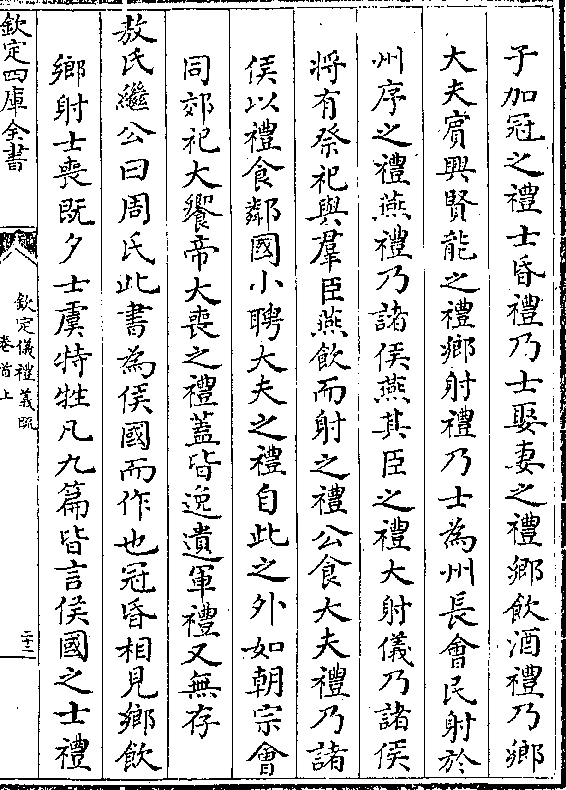 子加冠之禮士昏禮乃士娶妻之禮鄉飲酒禮乃鄉
大夫賓興賢能之禮鄉射禮乃士為州長會民射於
州序之禮燕禮乃諸侯燕其臣之禮大射儀乃諸侯
將有祭祀與羣臣燕飲而射之禮公食大夫禮乃諸
侯以禮食鄰國小聘大夫之禮自此之外如朝宗會
同郊祀大饗帝大喪之禮蓋皆逸遺軍禮又無存
敖氏繼公曰周氏此書為侯國而作也冠昏相見鄉飲
鄉射士喪既夕士虞特牲凡九篇皆言侯國之士禮
欽定四庫全書
欽定儀禮義疏
卷首上
二十二